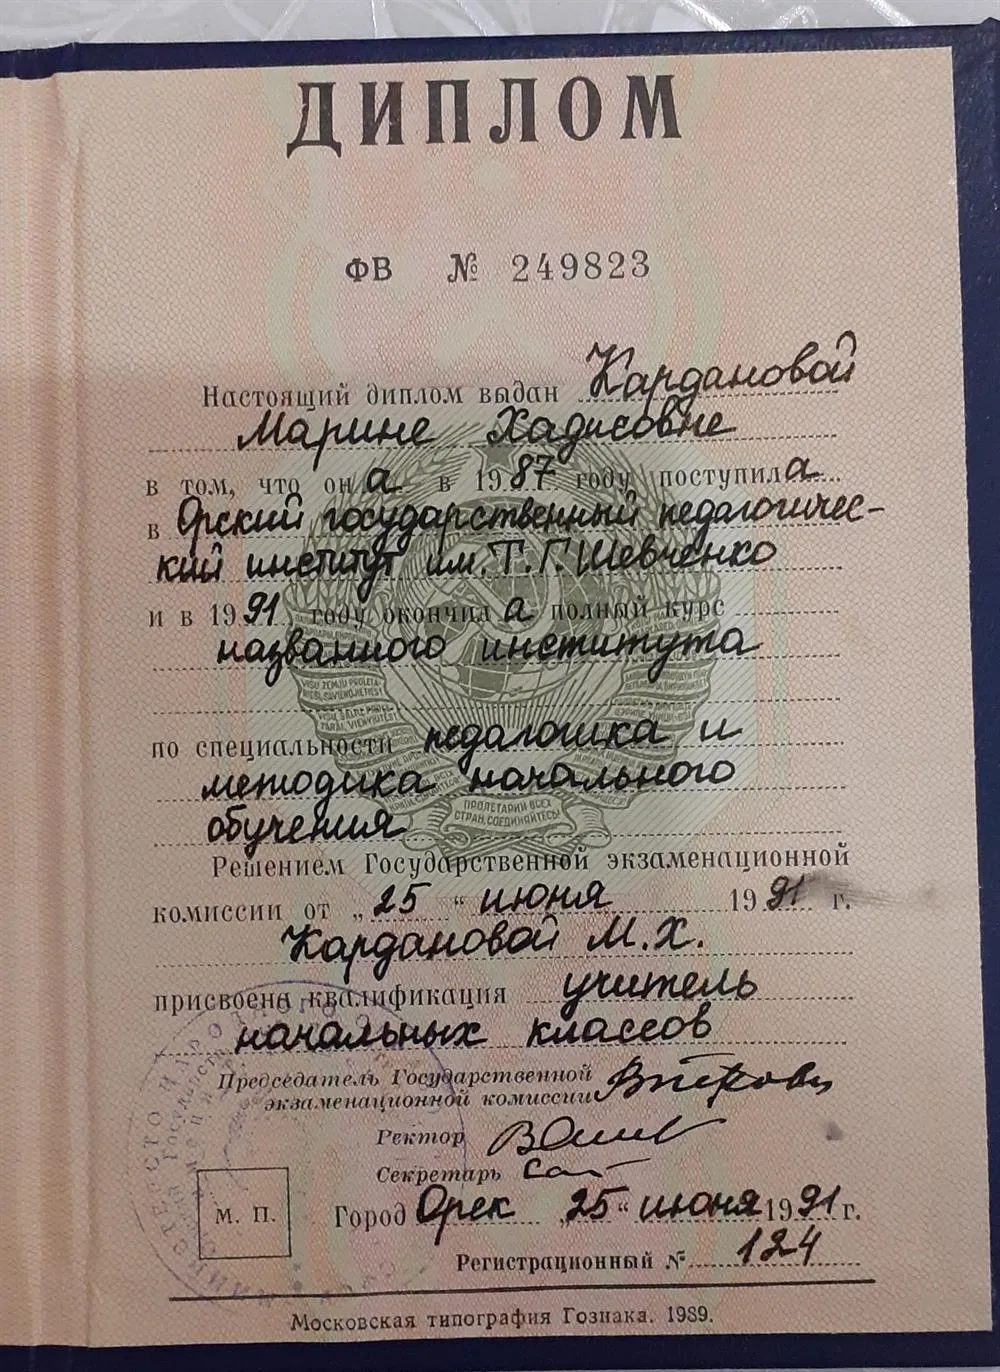 ДИПЛОМ
ФВ № 249823
Настоящий диплом выдан Кардановой
Марине Хадисовне
в том, что он а в 1987 году поступила
в Орский государственный педагогичес-
кий институт им. Т.Г. Шевченко
и в 1991 году окончила полный курс
названного института
по специальности педагогика и
методика начального
обучения
Решением Государственной экзаменационной
комиссии от „25“ июня 1991 г.
Кардановой М.Х.
присвоена квалификация учитель
начальных классов
Председатель Государственной
экзаменационной комиссии
Ректор
Секретарь
М. П.
Город Орск „25“ июня 1991 г.
Регистрационный № 124
Московская типография Гознака. 1989.
ПРОЛЕТАРИИ ВСЕХ
СТРАН, СОЕДИНЯЙТЕСЬ!